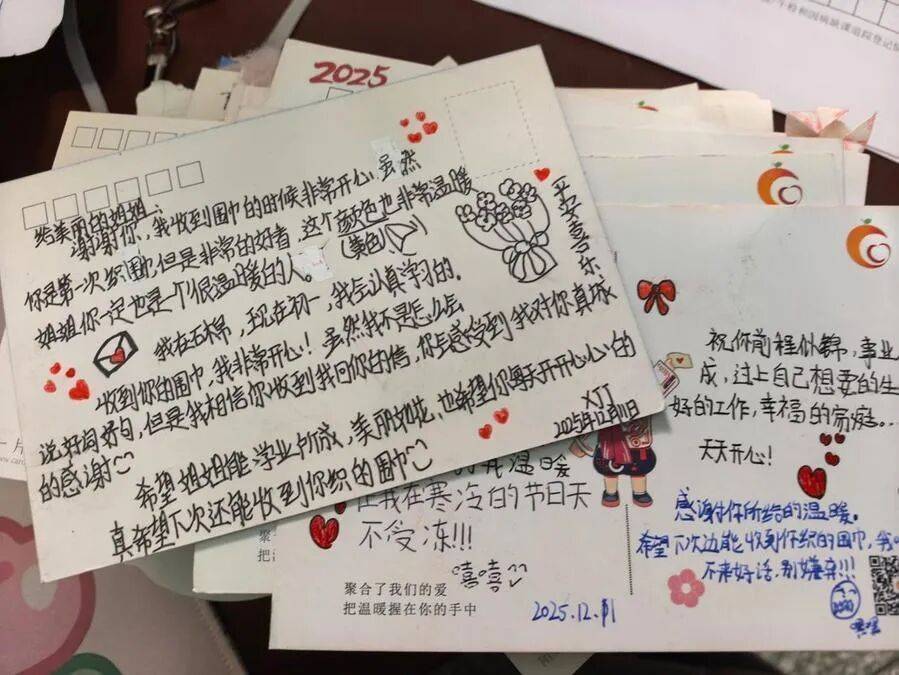 2025
给美丽的姐姐:
谢谢你,我收到围巾的时候非常开心,虽然
你是第一次织围巾,但是非常的好看,这个颜色也非常温暖
(美色)
姐姐你一定也是一个很温暖的人
我在石棉,现在初一,我会认真学习的。
收到你的围巾,我非常开心!虽然我不是怎么会
说好词好句,但是我相信你收到我回你的信,你会感受到我对你真诚
的感谢
希望姐姐能学业有成,美丽如花,也希望你每天开开心心的
真希望下次还能收到你织的围巾
XJJ
2025年12月11日
平安喜乐
温暖
让我在寒冷的节日天
不受冻!!!
嘻嘻
聚合了我们的爱
把温暖握在你的手中
2025.12.11
祝你前程似锦,事业
成,过上自己想要的生
好的工作,幸福的家庭..
天天开心!
感谢你所给的温暖。
希望下次还能收到你织的围巾,我
不来好话,别嫌弃!!!
嘿嘿
聚
把